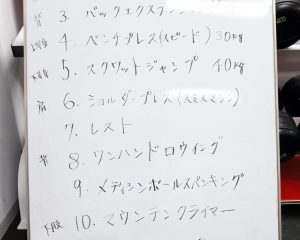 背 3. バックエクステンション
4. ベンチプレス(スピード) 30kg
5. スクワットジャンプ 40kg
肩 6. ショルダープレス(スミスマシン)
7. レスト
背 8. ワンハンドロウイング
9. メディシンボールスパンキング
下肢 10. マウンテンクライマー